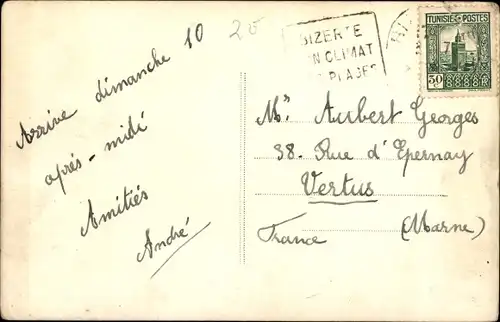 Arrive dimanche 10
après-midi
Amitiés
André
20
BIZERTE
ON CLIMAT
PLAGES
TUNISIE POSTES
30
Mr Aubert Georges
38. Rue d'Epernay
Vertus
(Marne)
France